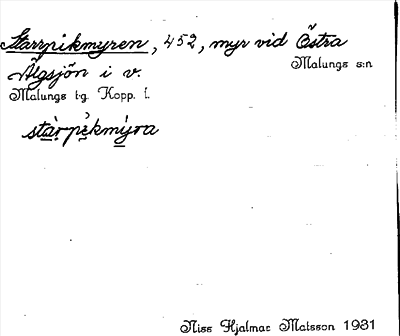 Starrpikmyren, 452, myr vid Östra
Malungs s:n
Älgsjön i v.
Malungs t-g. Kopp. l.
stàrpìkmýra
Niss Hjalmar Matsson 1931